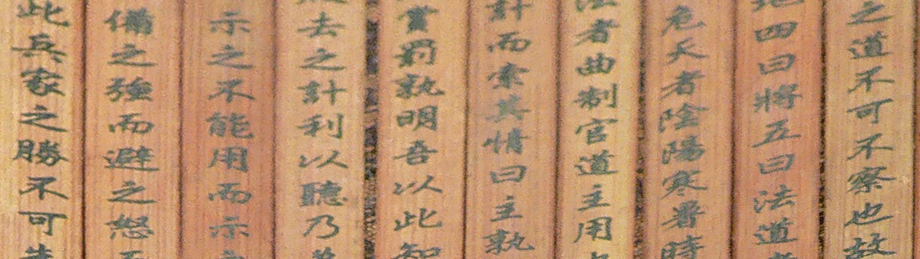 之道不可不察也故
地四曰將五曰法道
危天者陰陽寒暑時
法者曲制官道主用
計而索其情曰主孰
賞罰孰明吾以此知
去之計利以聽乃
示之不能用而示
備之強而避之怒
此兵家之勝不可先